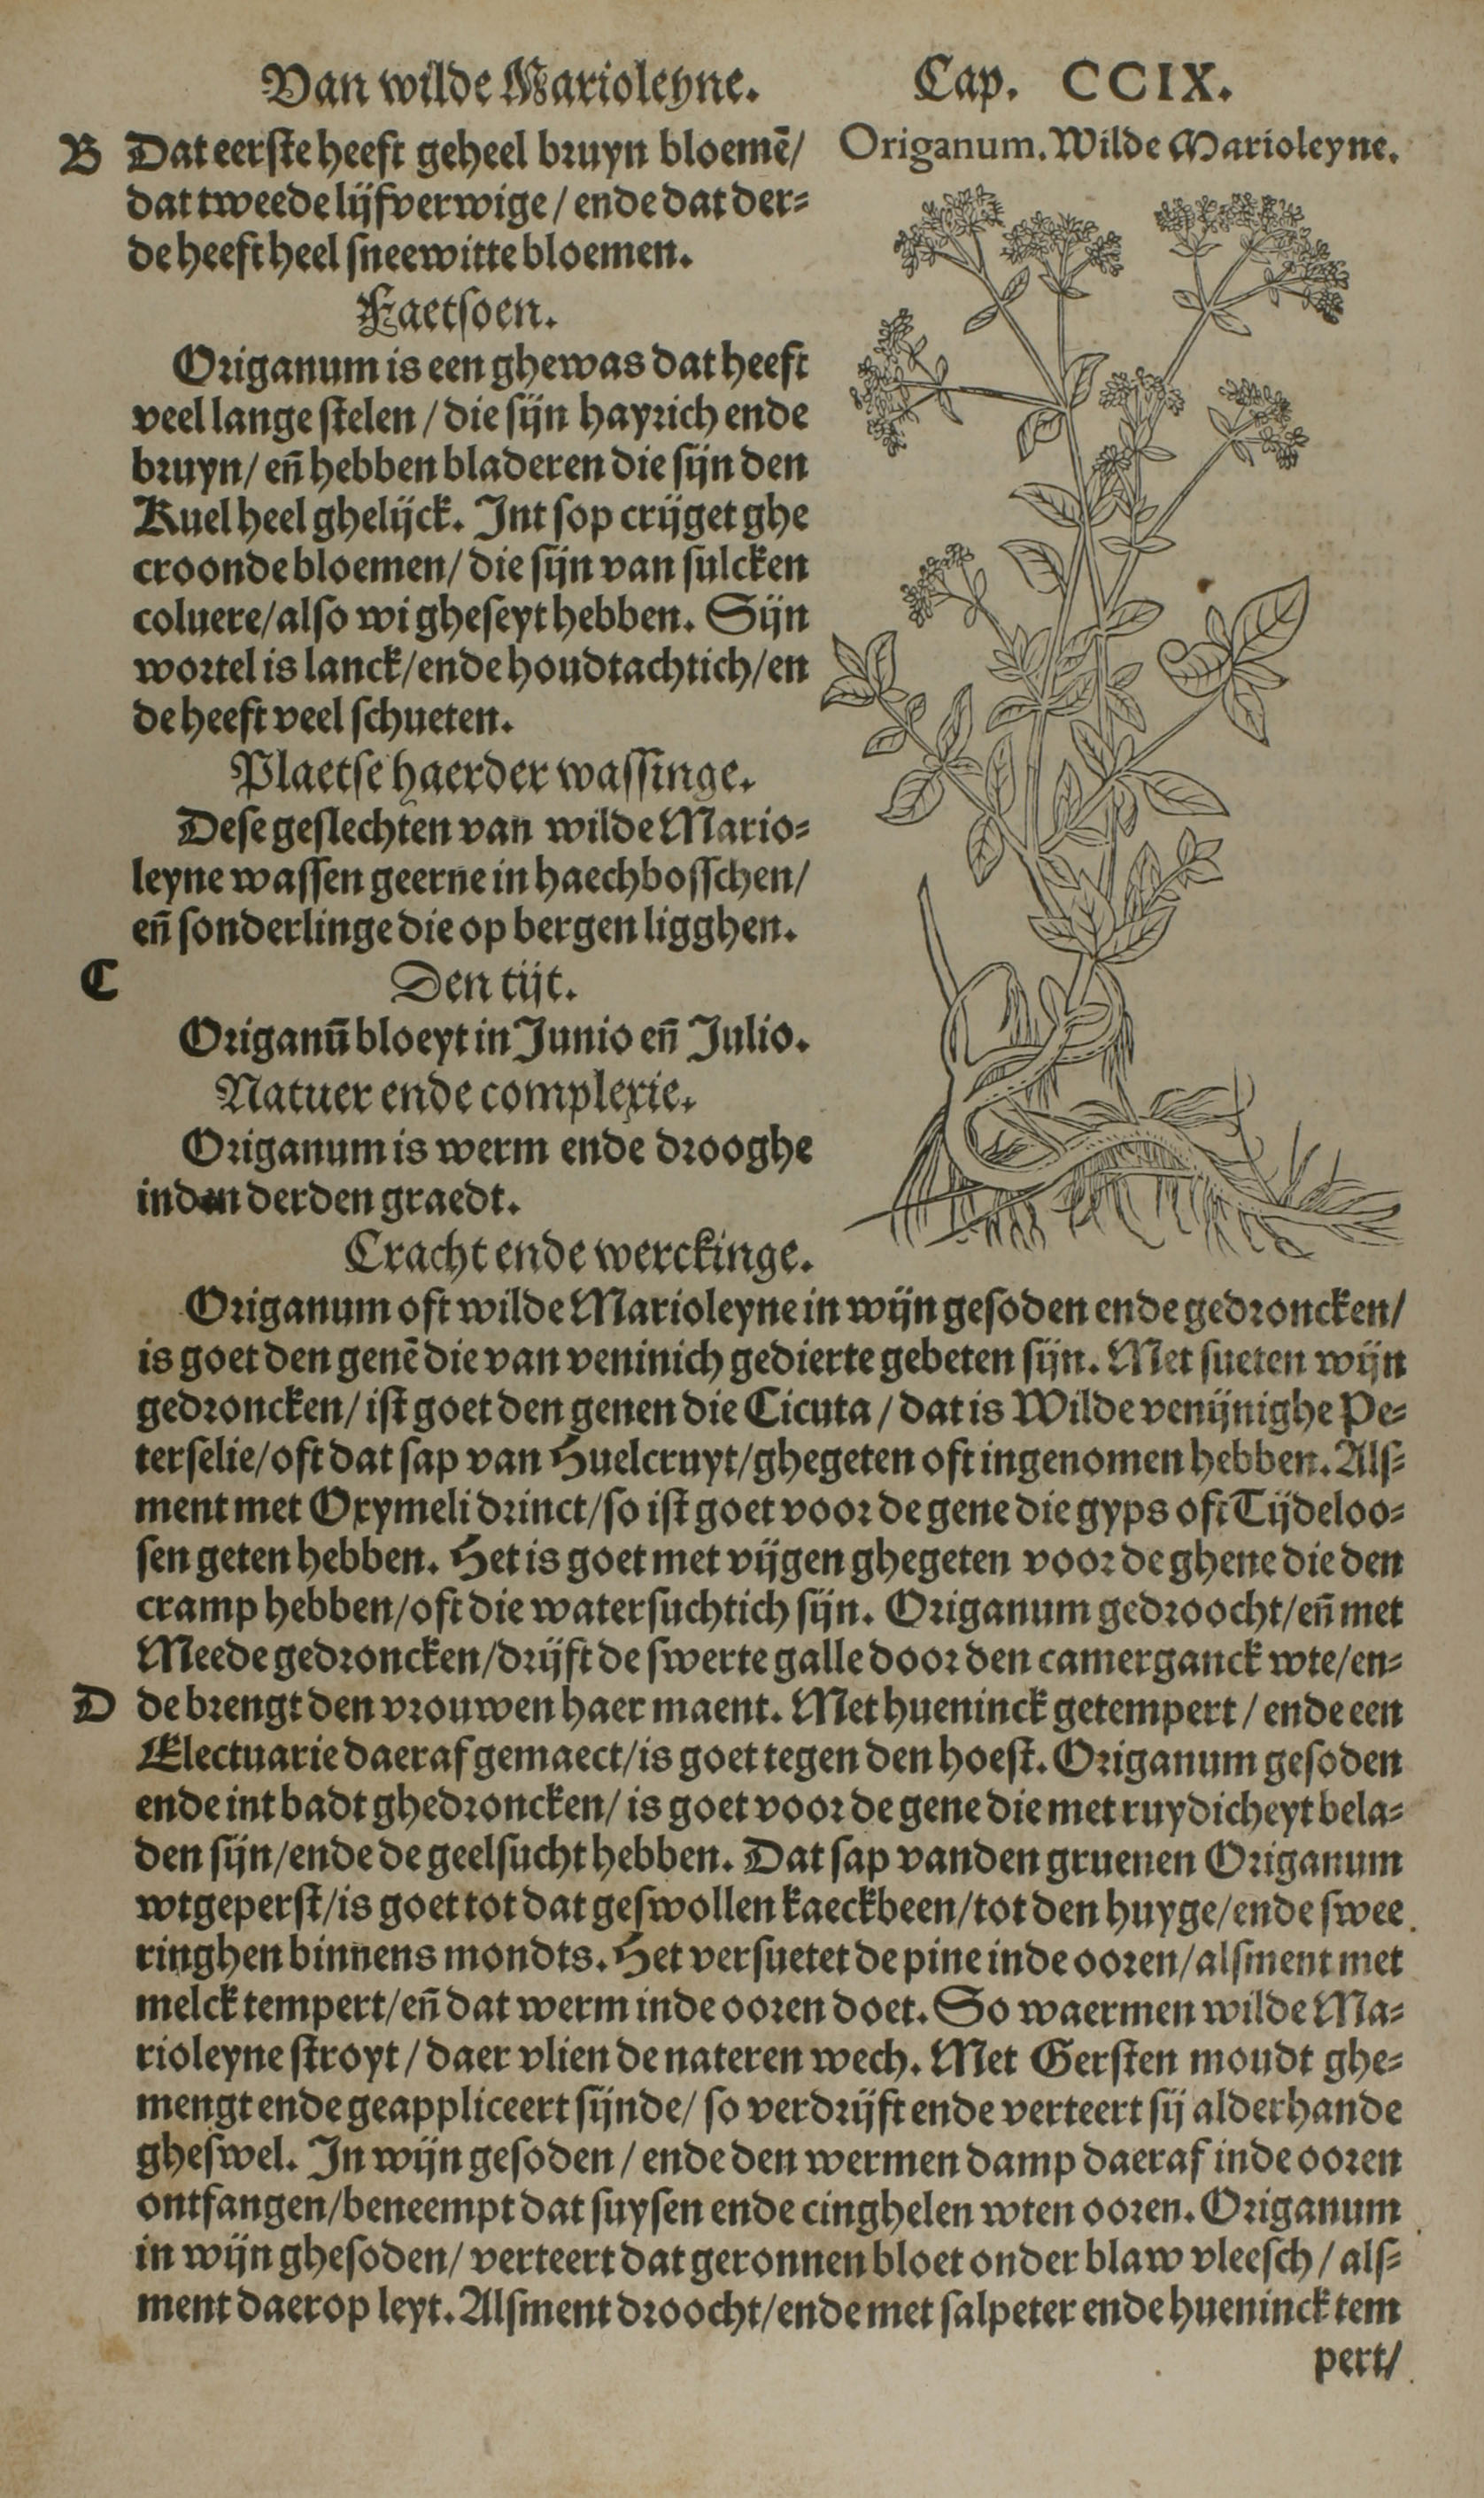 Van wilde Marioleyne. Cap. CCIX.
B Dat eerste heeft geheel bruyn bloemē/
dat tweede lijfverwige / ende dat der=
de heeft heel sneewitte bloemen.
Faetsoen.
Origanum is een ghewas dat heeft
veel lange stelen / die sijn hayrich ende
bruyn / eñ hebben bladeren die sijn den
Ruel heel ghelijck. Int sop crijget ghe
croonde bloemen / die sijn van sulcken
coluere / also wi gheseyt hebben. Sijn
wortel is lanck / ende houdtachtich / en
de heeft veel schueten.
Plaetse haerder wassinge.
Dese geslechten van wilde Mario=
leyne wassen geerne in haechbosschen /
eñ sonderlinge die op bergen ligghen.
C Den tijt.
Origanū bloeyt in Junio eñ Julio.
Natuer ende complexie.
Origanum is werm ende drooghe
inden derden graedt.
Origanum. Wilde Marioleyne.
Cracht ende werckinge.
Origanum oft wilde Marioleyne in wijn gesoden ende gedroncken /
is goet den genē die van veninich gedierte gebeten sijn. Met sueten wijn
gedroncken / ist goet den genen die Cicuta / dat is Wilde venijnighe Pe=
terselie / oft dat sap van Huelcruyt / ghegeten oft ingenomen hebben. Als=
ment met Oxymeli drinct / so ist goet voor de gene die gyps oft Tijdeloo=
sen geten hebben. Het is goet met vijgen ghegeten voor de ghene die den
cramp hebben / oft die watersuchtich sijn. Origanum gedroocht / eñ met
Meede gedroncken / drijft de swerte galle door den camerganck wte / en=
D de brengt den vrouwen haer maent. Met hueninck getempert / ende een
Electuarie daer af gemaect / is goet tegen den hoest. Origanum gesoden
ende int badt ghedroncken / is goet voor de gene die met ruydicheyt bela=
den sijn / ende de geelsucht hebben. Dat sap vanden gruenen Origanum
wtgeperst / is goet tot dat geswollen kaeckbeen / tot den huyge / ende swee
ringhen binnens mondts. Het versuetet de pine inde ooren / alsment met
melck tempert / eñ dat werm inde ooren doet. So waermen wilde Ma=
rioleyne stroyt / daer vlien de nateren wech. Met Gersten moudt ghe=
mengt ende geappliceert sijnde / so verdrijft ende verteert sij alderhande
gheswel. In wijn gesoden / ende den wermen damp daeraf inde ooren
ontfangen / beneempt dat suysen ende cinghelen wten ooren. Origanum
in wijn ghesoden / verteert dat geronnen bloet onder blaw vleesch / als=
ment daerop leyt. Alsment droocht / ende met salpeter ende hueninck tem
pert /